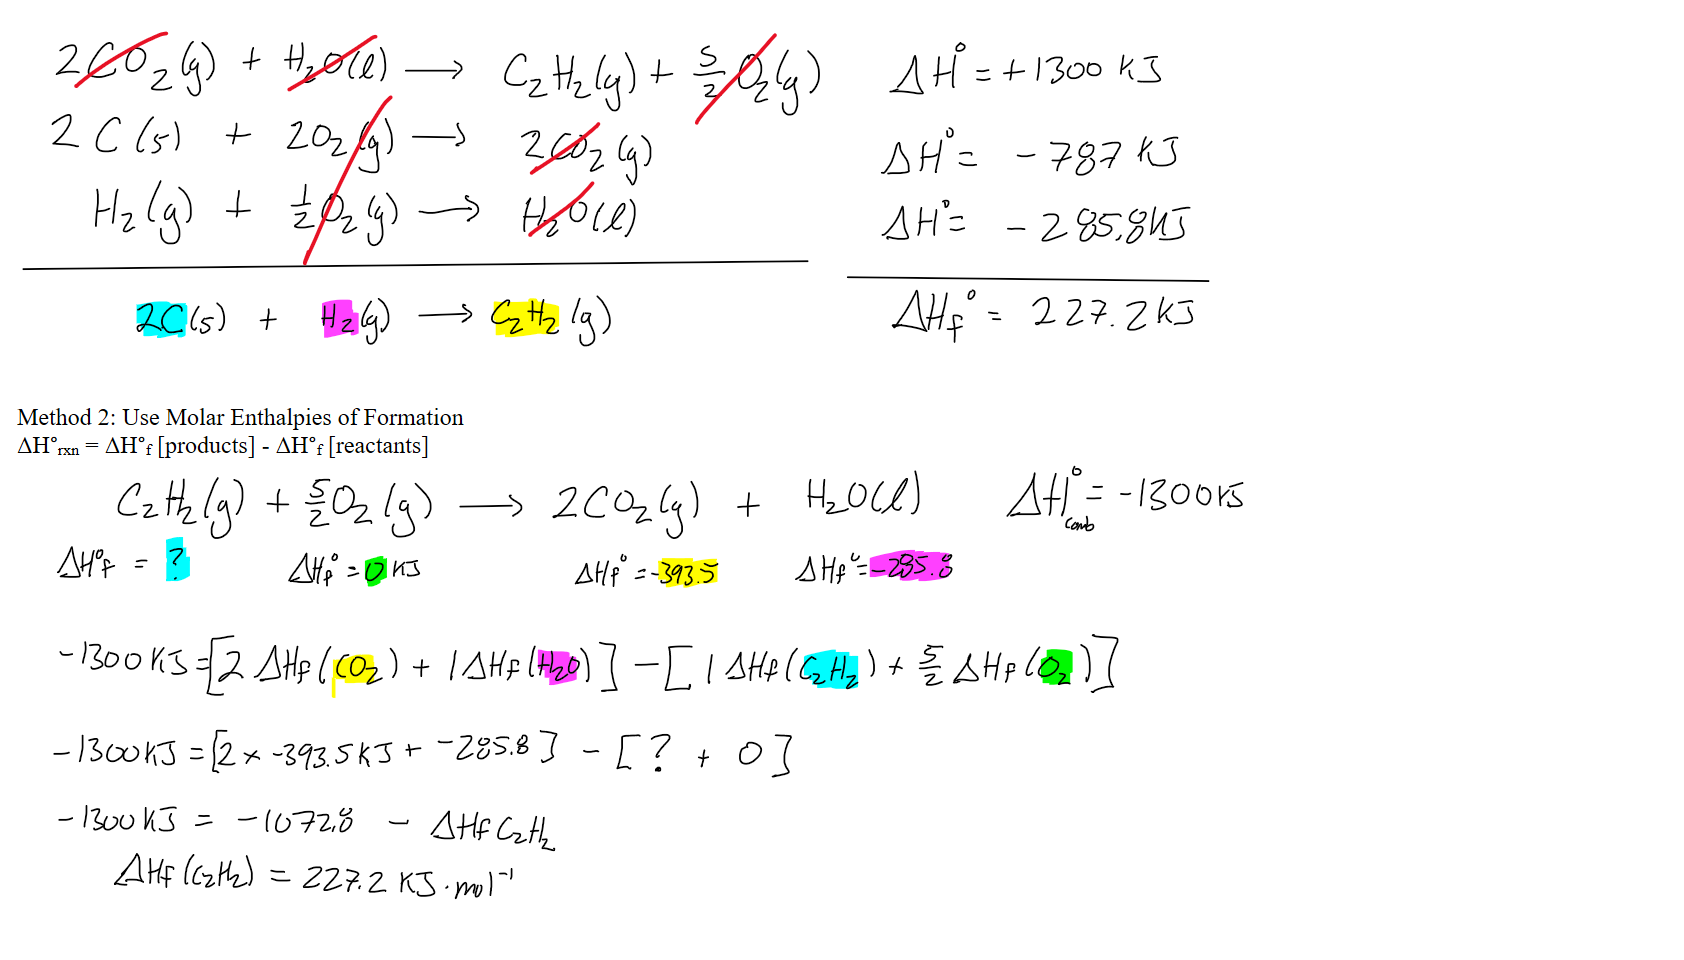 2CO₂(g) + H₂O(l) → C₂H₂(g) + 5/2 O₂(g) ΔH° = +1300 KJ
2C(s) + 2O₂(g) → 2CO₂(g) ΔH° = -787 KJ
H₂(g) + 1/2 O₂(g) → H₂O(l) ΔH° = -285.8KJ
2C(s) + H₂(g) → C₂H₂(g) ΔHf° = 227.2KJ
Method 2: Use Molar Enthalpies of Formation
ΔH°rxn = ΔH°f [products] - ΔH°f [reactants]
C₂H₂(g) + 5/2 O₂(g) → 2CO₂(g) + H₂O(l) ΔH°comb = -1300KJ
ΔH°f = ? ΔHf° = 0 KJ ΔHf° = -393.5 ΔHf° = -285.8
-1300KJ = [2 ΔHf(CO₂) + 1ΔHf(H₂O)] - [1 ΔHf(C₂H₂) + 5/2 ΔHf(O₂)]
-1300KJ = [2 × -393.5KJ + -285.8] - [? + 0]
-1300KJ = -1072.8 - ΔHf C₂H₂
ΔHf(C₂H₂) = 227.2 KJ·mol⁻¹